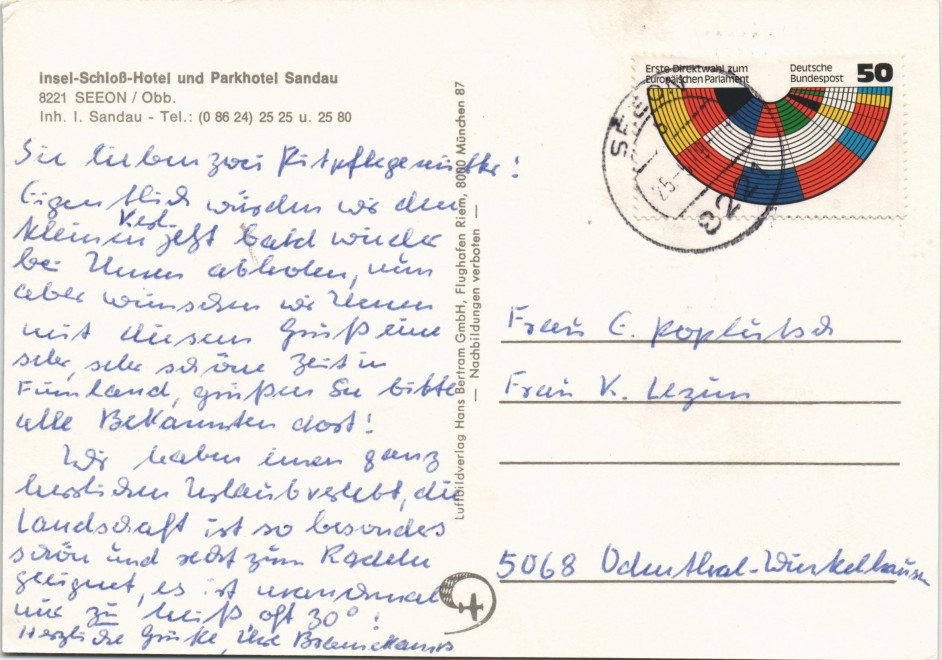 Insel-Schloß-Hotel und Parkhotel Sandau
8221 SEEON / Obb.
Inh. I. Sandau - Tel.: (0 86 24) 25 25 u. 25 80
Sie lieben zwei
Eigentlich würden wir den
kleinen Kerl jetzt bald wieder
bei Ihnen abholen, nun
aber wünschen wir Ihnen
mit diesem Gruß eine
sehr, sehr schöne Zeit in
Finnland, grüßen Sie bitte
alle Bekannten dort!
Wir haben einen ganz
herrlichen Urlaub verlebt, die
Landschaft ist so besonders
schön und sehr zum Radeln
geeignet, es ist manchmal
nur zu heiß, oft 30°!
Herzliche Grüße, Ihre
Luftbildverlag Hans Bertram GmbH, Flughafen Riem, 8000 München 87
— Nachbildungen verboten —
Erste Direktwahl zum
Europäischen Parlament
Deutsche
Bundespost
50
SEEON
8221
Frau E.
Frau K. Lezim
5068 Odenthal-Winkelhausen